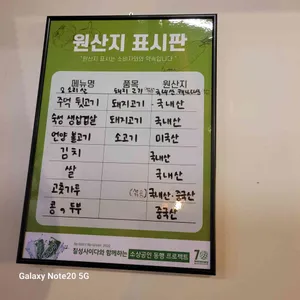 원산지 표시판
"원산지 표시는 소비자와의 약속입니다."
메뉴명 품목 원산지
돼지고기
주먹 뒷고기 돼지고기 국내산
숙성 생삼겹살 돼지고기 국내산
언양 불고기 소고기 미국산
김치 국내산
쌀 국내산
고춧가루 국내산·중국산
콩, 두부 중국산
칠성사이다와 함께하는 소상공인 동행 프로젝트 70
Galaxy Note20 5G